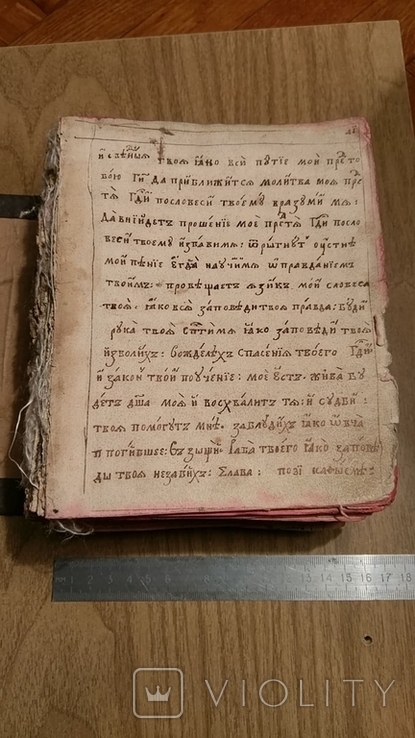 и свѣнїѧ твоѧ ꙗко вси путїе мои прⷣето
бою гⷭ҇и да приближитсѧ молитва моѧ пре
тѧ гⷭ҇ди пословеси твоему вразуми мѧ:
давнийдетъ прошенїе мое претѧ гⷭ҇ди посло
веси твоему избавимѧ: ѿрыгнут оустнѣ
мои пѣнїе егда научимѧ ѡправданїемъ
твоимъ: провѣщаетъ ѧзикъ мой словеса
твоѧ. ꙗко всѧ заповѣди твоѧ правда: буди
рука твоѧ сп҃тимѧ ꙗко заповѣди твоѧ
изволихъ: вожделехъ спасенїѧ твоего гⷭ҇ди
и закон твой поученїе: мое ѹсть. жива бу
детъ дш҃а моѧ и восхвалит тѧ: и судби:
твоѧ помогутъ мнѣ. заблудихъ ꙗко ѡвча
п погибшее: взыщи раба твоего ꙗко запове
ди твоѧ незабихъ: слава:
1 2 3 4 5 6 7 8 13 14 15 16 17 18
VIOLITY